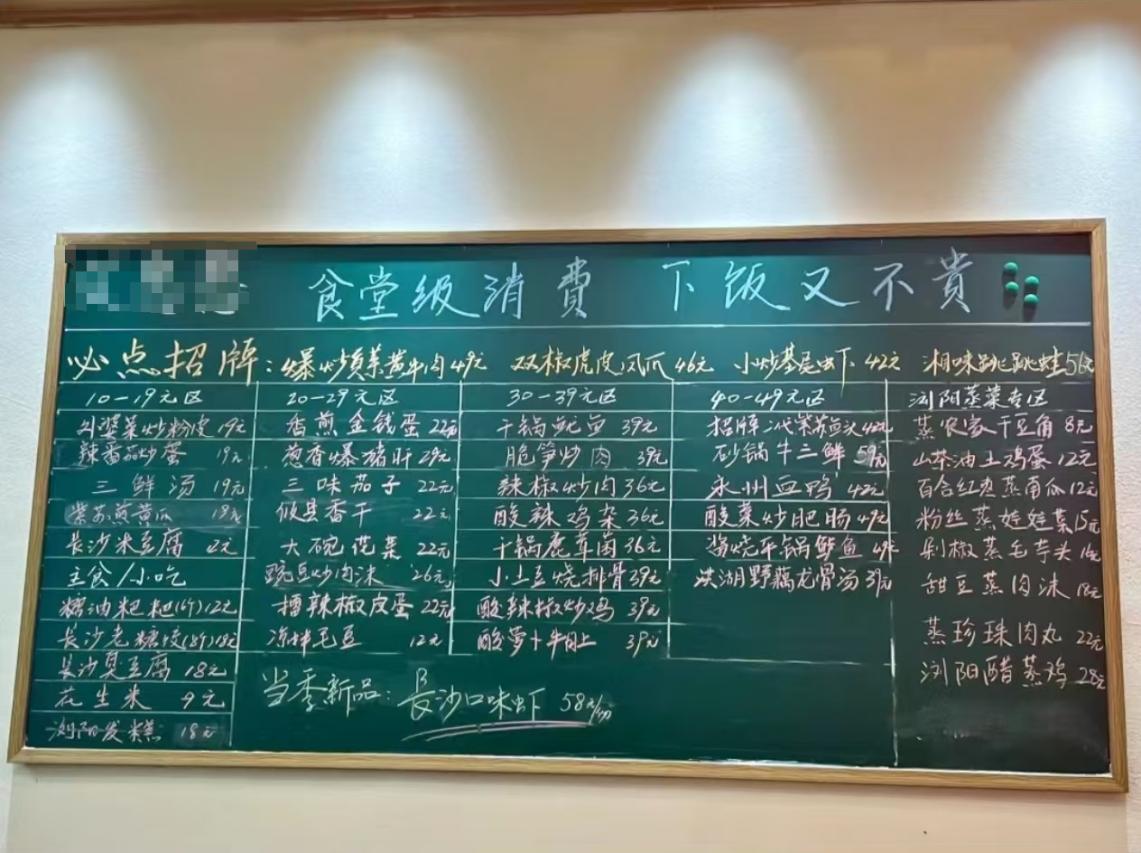 食堂级消费 下饭又不贵
必点招牌：爆炒黄牛肉49元 双椒虎皮凤爪46元 小炒基尾虾42元 湘味跳跳蛙56元
10-19元区
外婆菜炒粉皮 19元
辣番茄炒蛋 19元
三鲜汤 19元
紫苏煎黄瓜 18元
长沙米豆腐 2元
主食/小吃
糖油粑粑(6个)12元
长沙老糖饺(8个)18元
长沙臭豆腐 18元
花生米 9元
浏阳发糕 18元
20-29元区
香煎金钱蛋 22元
葱香爆猪肝 29元
三味茄子 22元
攸县香干 22元
大碗花菜 22元
豌豆炒肉沫 26元
擂辣椒皮蛋 22元
凉拌毛豆 12元
30-39元区
干锅鱿鱼 39元
脆笋炒肉 39元
辣椒炒肉 36元
酸辣鸡杂 36元
干锅鹿茸菌 36元
小土豆烧排骨 39元
酸辣椒炒鸡 39元
酸萝卜牛肚 39元
40-49元区
招牌紫苏鱼头 42元
砂锅牛三鲜 59元
永州血鸭 42元
酸菜炒肥肠 49元
酱烧干锅鲈鱼 49元
洪湖野藕龙骨汤 39元
浏阳蒸菜专区
蒸农家干豆角 8元
山茶油土鸡蛋 12元
百合红枣蒸南瓜 12元
粉丝蒸娃娃菜 15元
剁椒蒸毛芋头 16元
甜豆蒸肉沫 18元
蒸珍珠肉丸 22元
浏阳醋蒸鸡 28元
当季新品：长沙口味虾 58元/份